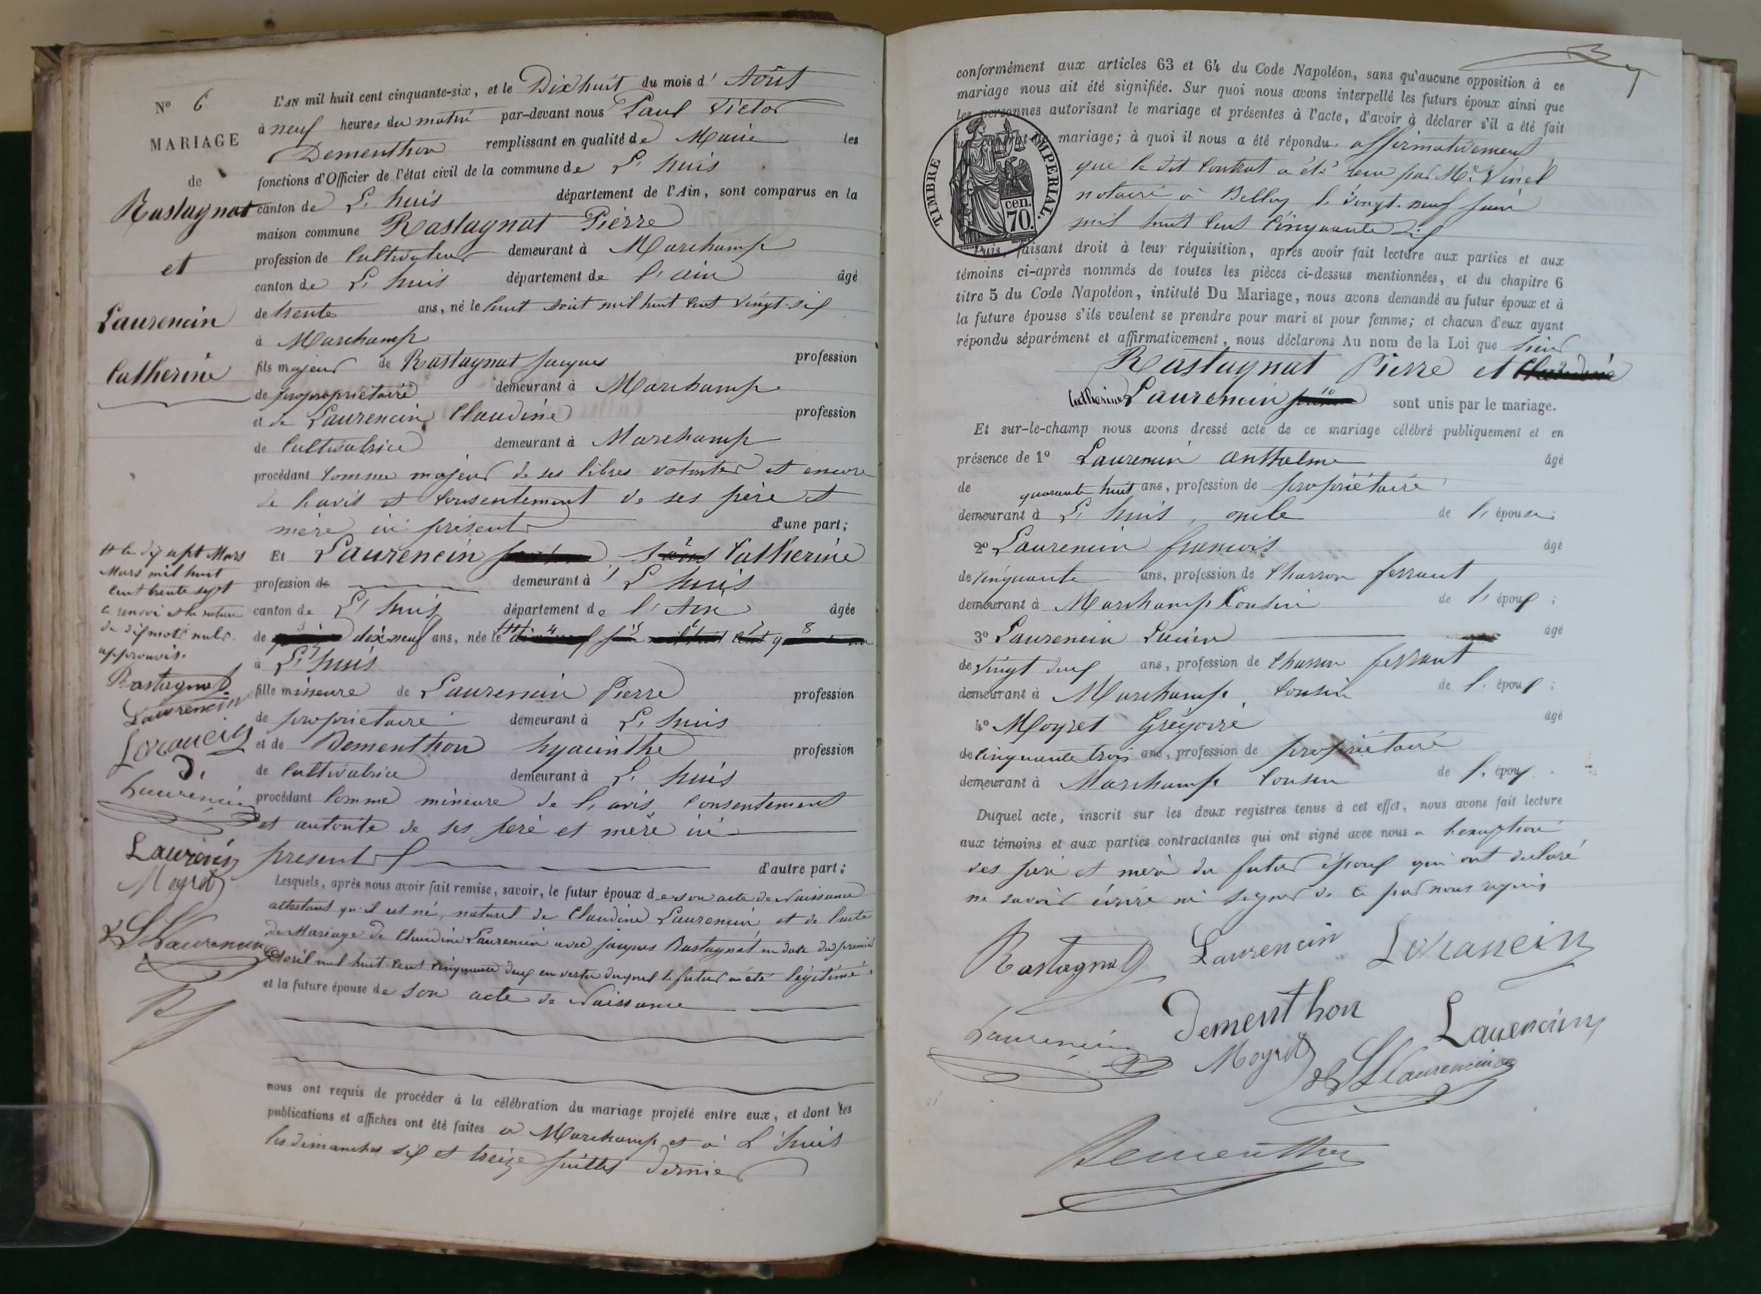 N° 6
MARIAGE
de
Rastagnat
et
Laurencin
Catherine
L'AN mil huit cent cinquante-six, et le Dixhuit du mois d' Août
à neuf heures du matin par-devant nous Paul Victor
Dementhon remplissant en qualité de Maire les
fonctions d'Officier de l'état civil de la commune de L'huis
canton de L'huis département de l'Ain, sont comparus en la
maison commune Rastagnat Pierre
profession de Cultivateur demeurant à Marchamp
canton de L'huis département de l'ain âgé
de trente ans, né le huit août mil huit cent vingt-six
à Marchamp
fils majeur de Rastagnat Jacques profession
de propropriétaire demeurant à Marchamp
et de Laurencin Claudine profession
de Cultivatrice demeurant à Marchamp
procédant comme majeur de ses libres volontés et encore
de l'avis et consentement de ses père et
mère ici présents d'une part;
Et Laurencin Catherine
profession de demeurant à L'huis
canton de L'huis département de l'Ain âgée
de dix neuf ans, née le
à L'huis
fille mineure de Laurencin Pierre profession
de propriétaire demeurant à L'huis
et de Dementhon hyacinthe profession
de Cultivatrice demeurant à L'huis
procédant comme mineure de l'avis consentement
et autorité de ses père et mère ici
présents d'autre part;
Lesquels, après nous avoir fait remise, savoir, le futur époux de son acte de Naissance
attestant qu'il est né, naturel de Claudine Laurencin, et de l'acte
de Mariage de Claudine Laurencin avec Jacques Rastagnat en date du premier
avril mil huit cent cinquante deux en vertu duquel le futur a été légitimé
et la future épouse de son acte de Naissance
nous ont requis de procéder à la célébration du mariage projeté entre eux, et dont les
publications et affiches ont été faites à Marchamp et à L'huis
les dimanches six et treize juillet dernier
dix sept Mars
Mars mil huit
cent trente sept
le renvoi et la rature
de dix mots nuls
approuvés.
Rastagnat
Laurencin
Lorancin
D.
Laurencin
Laurencin
Moyret
Laurencin
conformément aux articles 63 et 64 du Code Napoléon, sans qu'aucune opposition à ce
mariage nous ait été signifiée. Sur quoi nous avons interpellé les futurs époux ainsi que
les personnes autorisant le mariage et présentes à l'acte, d'avoir à déclarer s'il a été fait
mariage; à quoi il nous a été répondu affirmativement
que le dit Contrat a été reçu par Me Vinel
notaire à Belley le vingt-neuf juin
mil huit cent cinquante six
TIMBRE IMPERIAL.
70 cen.
Puis, faisant droit à leur réquisition, après avoir fait lecture aux parties et aux
témoins ci-après nommés de toutes les pièces ci-dessus mentionnées, et du chapitre 6
titre 5 du Code Napoléon, intitulé Du Mariage, nous avons demandé au futur époux et à
la future épouse s'ils veulent se prendre pour mari et pour femme; et chacun d'eux ayant
répondu séparément et affirmativement, nous déclarons Au nom de la Loi que
Rastagnat Pierre et Claudine
Catherine Laurencin sont unis par le mariage.
Et sur-le-champ nous avons dressé acte de ce mariage célébré publiquement et en
présence de 1° Laurencin Anthelme âgé
de quarante huit ans, profession de propriétaire
demeurant à L'huis, oncle de l'épouse;
2° Laurencin françois âgé
de cinquante ans, profession de Charron ferrant
demeurant à Marchamp Cousin de l'époux;
3° Laurencin Lucien âgé
de vingt deux ans, profession de Charron ferrant
demeurant à Marchamp Cousin de l'époux;
4° Moyret Grégoire âgé
de cinquante trois ans, profession de propriétaire
demeurant à Marchamp Cousin de l'époux.
Duquel acte, inscrit sur les deux registres tenus à cet effet, nous avons fait lecture
aux témoins et aux parties contractantes qui ont signé avec nous à l'exception
des père et mère du futur époux qui ont déclaré
ne savoir écrire ni signer de ce par nous requis
Rastagnat Laurencin Lorancin
Laurencin Dementhon Laurencin
Moyret Laurencin
Dementhon